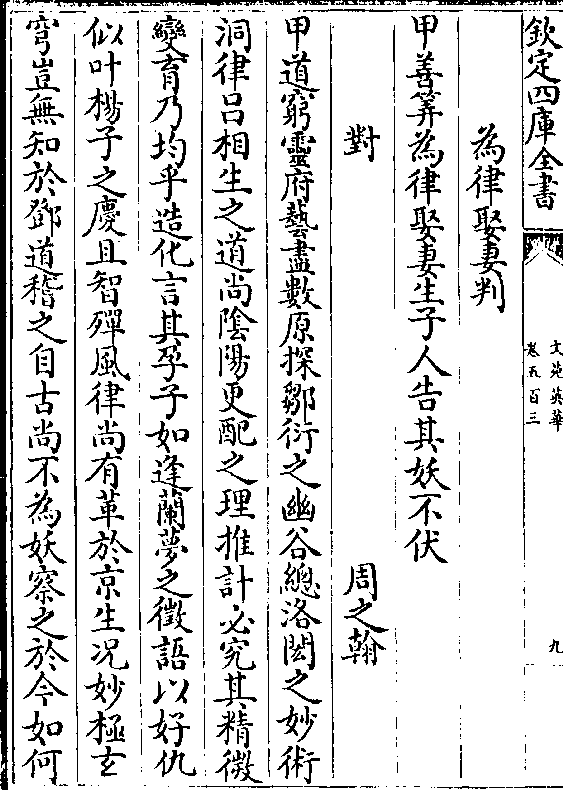 欽定四庫全書
文苑英華
卷五百三
九
為律娶妻判
甲善筭為律娶妻生子人告其妖不伏
對
周之翰
甲道窮靈府藝盡數原探鄒衍之幽谷總洛閎之妙術
洞律吕相生之道尚陰陽更配之理推計必究其精微
變育乃均乎造化言其孕子如逢蘭夢之徵語以好仇
似叶楊子之慶且智殫風律尚有革於京生况妙極玄
穹豈無知於鄧道稽之自古尚不為妖察之於今如何